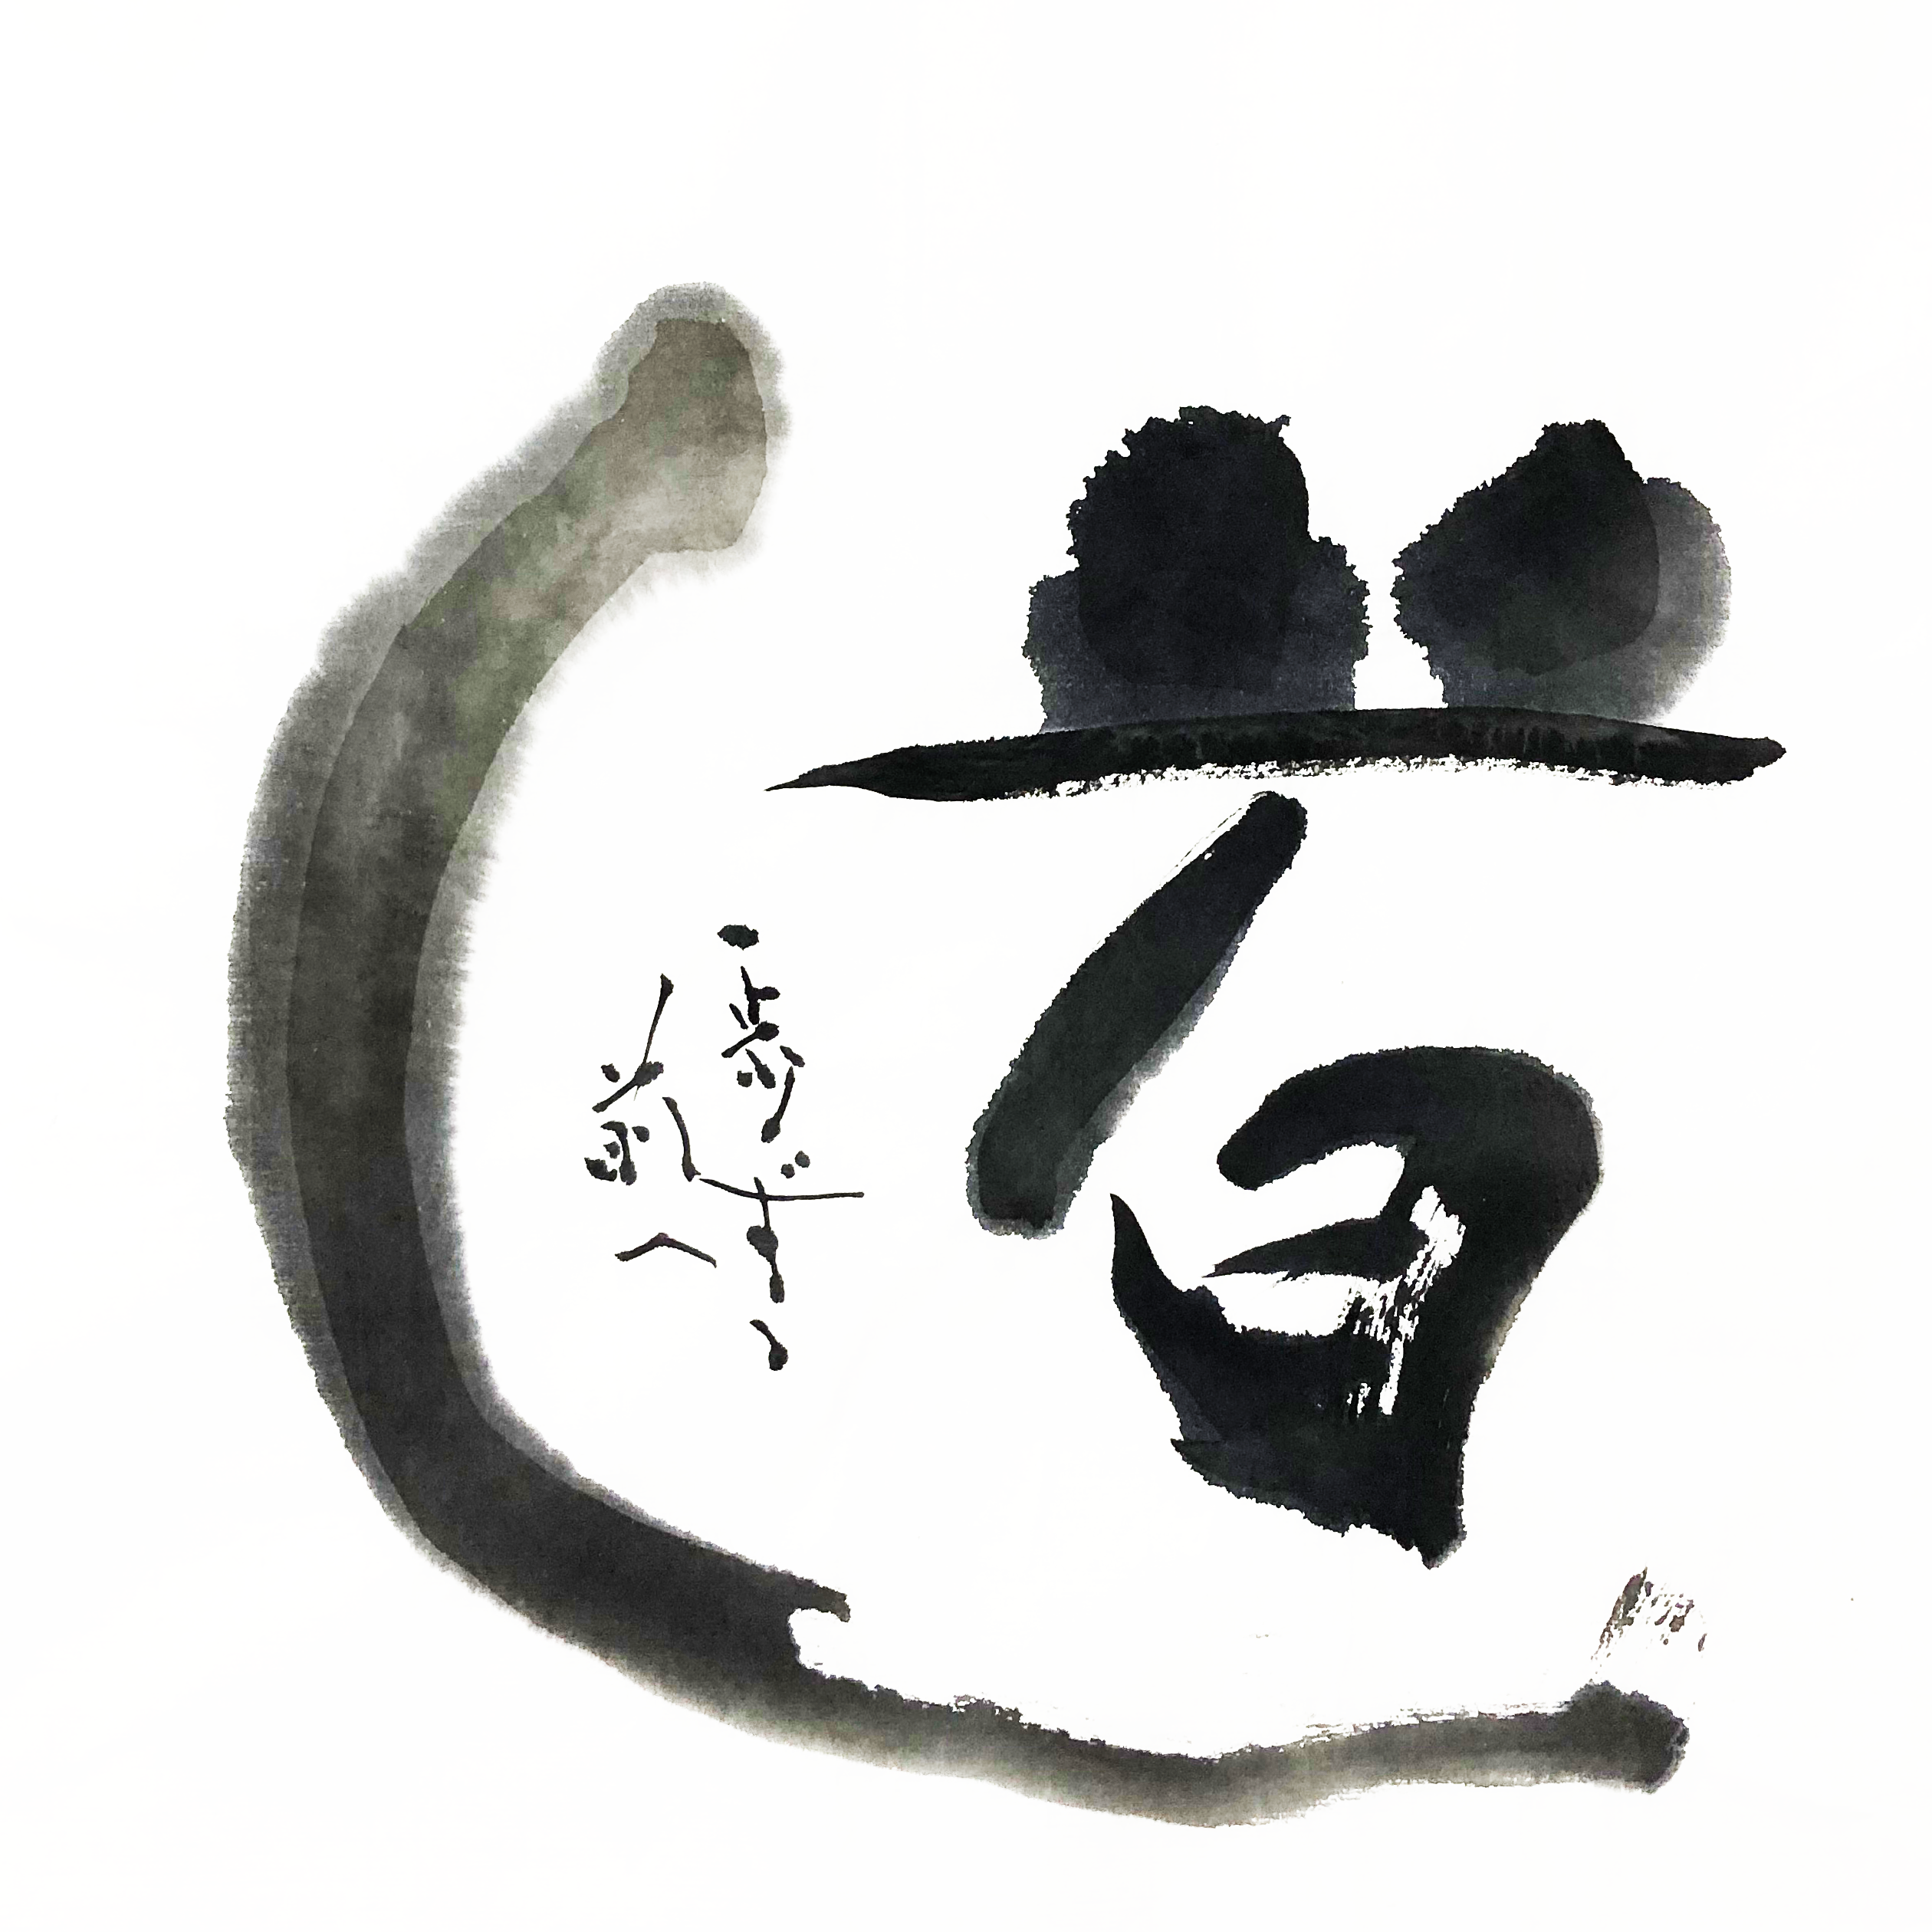 道
一歩ずつ
前へ